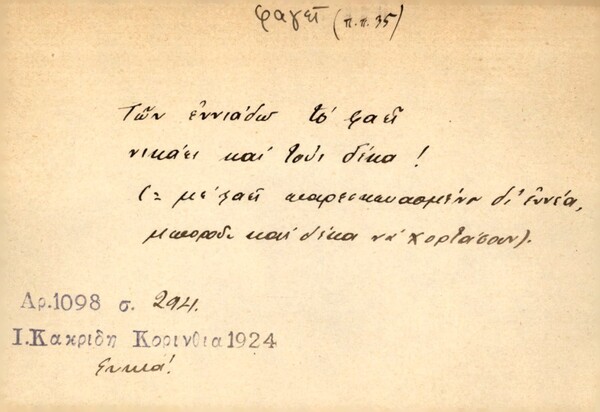 φαγεῖ (π.π. 35)
Τῶν ἐννιάδω τό φαεῖ
νικάει καί τούς δέκα!
(= μέ φαεῖ παρεσκευασμένο δι' ἐννέα,
μποροῦν καί δέκα νά χορτάσουν).
Αρ.1098 σ. 294.
Ι.Κακριδη Κορινθια 1924